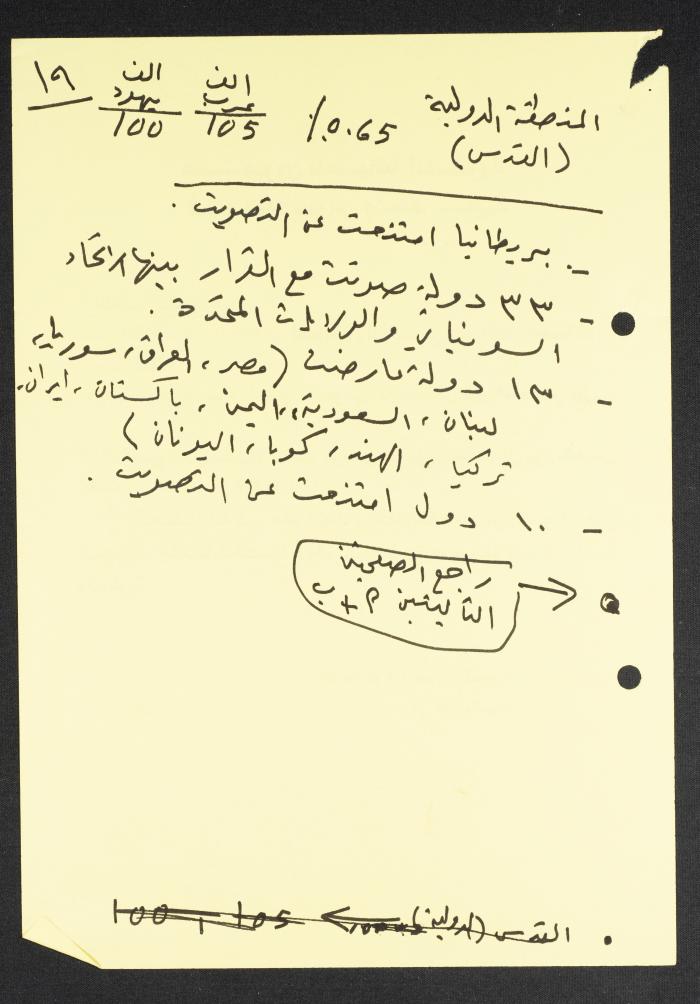 ١٩
المنطقة الدولية %0.65 الف عرب 105 الف يهود 100
(القدس)
- بريطانيا امتنعت عن التصويت .
- ٣٣ دولة صوتت مع القرار بينها الاتحاد
السوفياتي والولايات المتحدة .
- ١٣ دولة عارضت (مصر، العراق، سوريا،
لبنان، السعودية، اليمن، باكستان، ايران،
تركيا، الهند، كوبا، اليونان)
- ١٠ دول امتنعت عن التصويت .
راجع الصفحتين
التاليتين أ + ب
. القدس (الدولية) 105 , 100